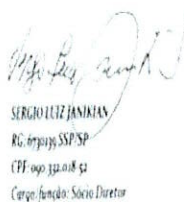 SERGIO LUIZ JANIKIAN
RG: 6730139 SSP/SP
CPF: 090 332.018 52
Cargo/função: Sócio Diretor